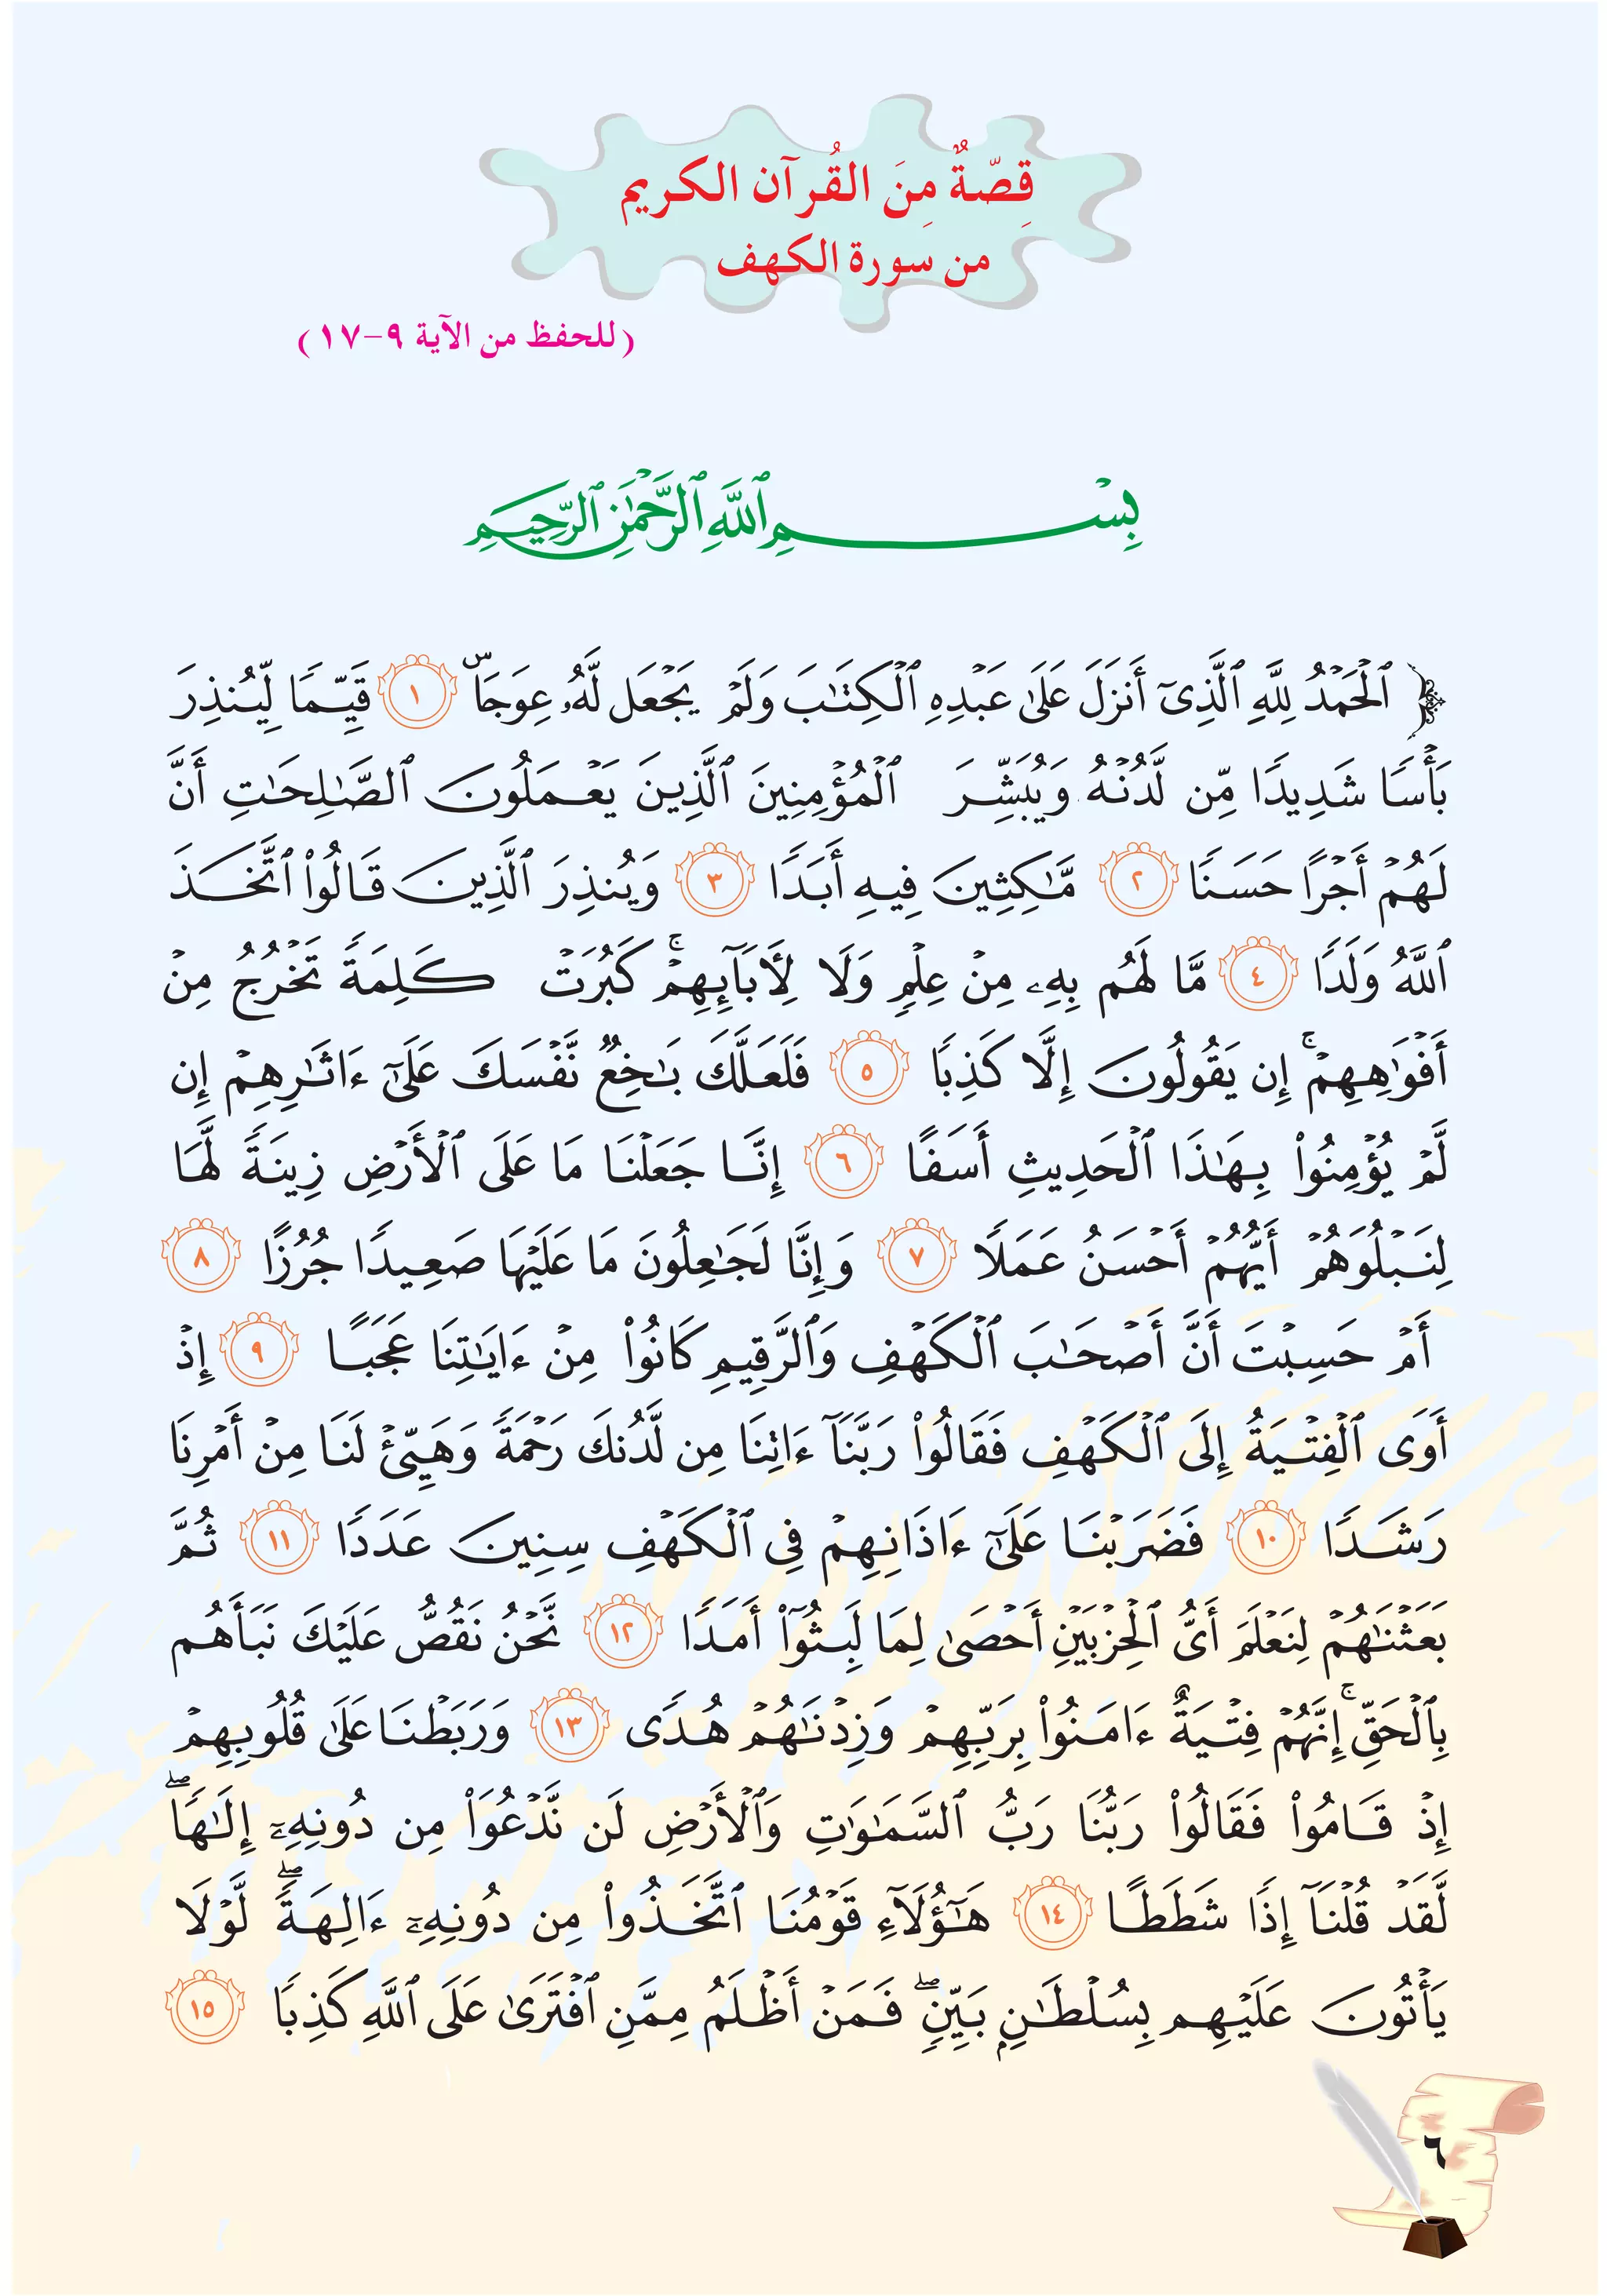 قِصّةٌ مِنَ القُرآن الكريم
من سَورة الكهف
(للحفظ من الآية ٩-١٧)
بِسْمِ ٱللَّهِ ٱلرَّحْمَٰنِ ٱلرَّحِيمِ
﴿ ٱلْحَمْدُ لِلَّهِ ٱلَّذِىٓ أَنزَلَ عَلَىٰ عَبْدِهِ ٱلْكِتَٰبَ وَلَمْ يَجْعَل لَّهُۥ عِوَجَاۜ ١ قَيِّمًا لِّيُنذِرَ
بَأْسًا شَدِيدًا مِّن لَّدُنْهُ وَيُبَشِّرَ ٱلْمُؤْمِنِينَ ٱلَّذِينَ يَعْمَلُونَ ٱلصَّٰلِحَٰتِ أَنَّ
لَهُمْ أَجْرًا حَسَنًا ٢ مَّٰكِثِينَ فِيهِ أَبَدًا ٣ وَيُنذِرَ ٱلَّذِينَ قَالُوا۟ ٱتَّخَذَ
ٱللَّهُ وَلَدًا ٤ مَّا لَهُم بِهِۦ مِنْ عِلْمٍ وَلَا لِأَبَآئِهِمْ ۚ كَبُرَتْ كَلِمَةً تَخْرُجُ مِنْ
أَفْوَٰهِهِمْ ۚ إِن يَقُولُونَ إِلَّا كَذِبًا ٥ فَلَعَلَّكَ بَٰخِعٌ نَّفْسَكَ عَلَىٰٓ ءَاثَٰرِهِمْ إِن
لَّمْ يُؤْمِنُوا۟ بِهَٰذَا ٱلْحَدِيثِ أَسَفًا ٦ إِنَّا جَعَلْنَا مَا عَلَى ٱلْأَرْضِ زِينَةً لَّهَا
لِنَبْلُوَهُمْ أَيُّهُمْ أَحْسَنُ عَمَلًا ٧ وَإِنَّا لَجَٰعِلُونَ مَا عَلَيْهَا صَعِيدًا جُرُزًا ٨
أَمْ حَسِبْتَ أَنَّ أَصْحَٰبَ ٱلْكَهْفِ وَٱلرَّقِيمِ كَانُوا۟ مِنْ ءَايَٰتِنَا عَجَبًا ٩ إِذْ
أَوَى ٱلْفِتْيَةُ إِلَى ٱلْكَهْفِ فَقَالُوا۟ رَبَّنَآ ءَاتِنَا مِن لَّدُنكَ رَحْمَةً وَهَيِّئْ لَنَا مِنْ أَمْرِنَا
رَشَدًا ١٠ فَضَرَبْنَا عَلَىٰٓ ءَاذَانِهِمْ فِى ٱلْكَهْفِ سِنِينَ عَدَدًا ١١ ثُمَّ
بَعَثْنَٰهُمْ لِنَعْلَمَ أَىُّ ٱلْحِزْبَيْنِ أَحْصَىٰ لِمَا لَبِثُوٓا۟ أَمَدًا ١٢ نَّحْنُ نَقُصُّ عَلَيْكَ نَبَأَهُم
بِٱلْحَقِّ ۚ إِنَّهُمْ فِتْيَةٌ ءَامَنُوا۟ بِرَبِّهِمْ وَزِدْنَٰهُمْ هُدًى ١٣ وَرَبَطْنَا عَلَىٰ قُلُوبِهِمْ
إِذْ قَامُوا۟ فَقَالُوا۟ رَبُّنَا رَبُّ ٱلسَّمَٰوَٰتِ وَٱلْأَرْضِ لَن نَّدْعُوَا۟ مِن دُونِهِۦٓ إِلَٰهًا ۖ
لَّقَدْ قُلْنَآ إِذًا شَطَطًا ١٤ هَٰٓؤُلَآءِ قَوْمُنَا ٱتَّخَذُوا۟ مِن دُونِهِۦٓ ءَالِهَةً ۖ لَّوْلَا
يَأْتُونَ عَلَيْهِم بِسُلْطَٰنٍۭ بَيِّنٍ ۖ فَمَنْ أَظْلَمُ مِمَّنِ ٱفْتَرَىٰ عَلَى ٱللَّهِ كَذِبًا ١٥
٦